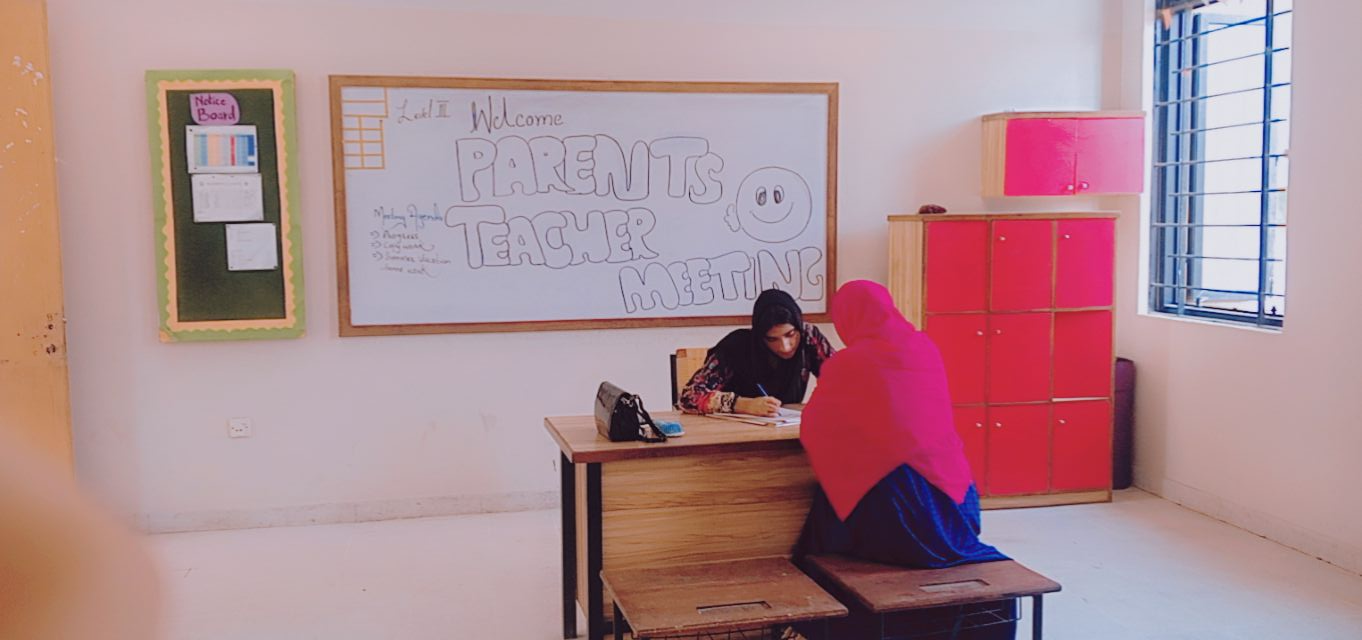 Notice
Board
Level III
Welcome
PARENTS
TEACHER
MEETING
Meeting Agenda
=> Progress
=> Copy work
=> Summer Vacation
home work